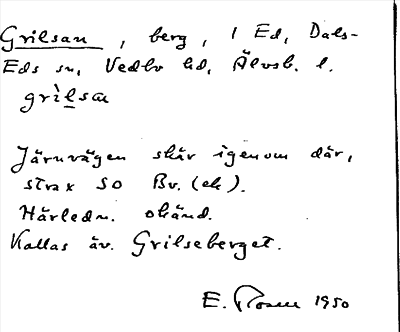 Grilsan, berg, i Ed, Dals-
Eds sn, Vedbo hd, Älvsb. l.
grìlsa
Järnvägen skär igenom där,
strax SO Bv. (ek).
Härledn. okänd.
Kallas äv. Grilseberget.
E. Rosen 1950